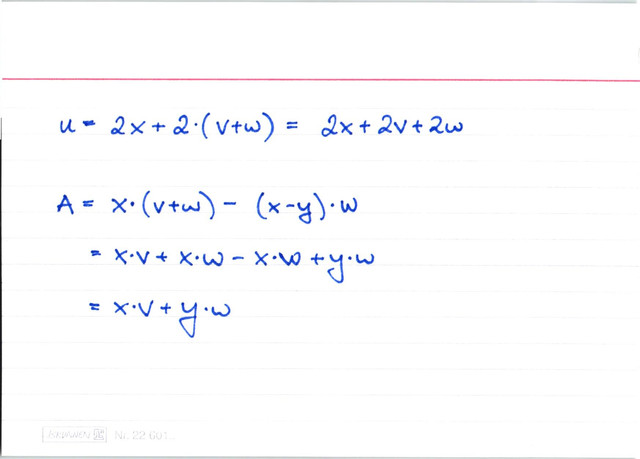 u = 2x + 2·(v+w) = 2x + 2v + 2w
A = x·(v+w) - (x-y)·w
= x·v + x·w - x·w + y·w
= x·v + y·w